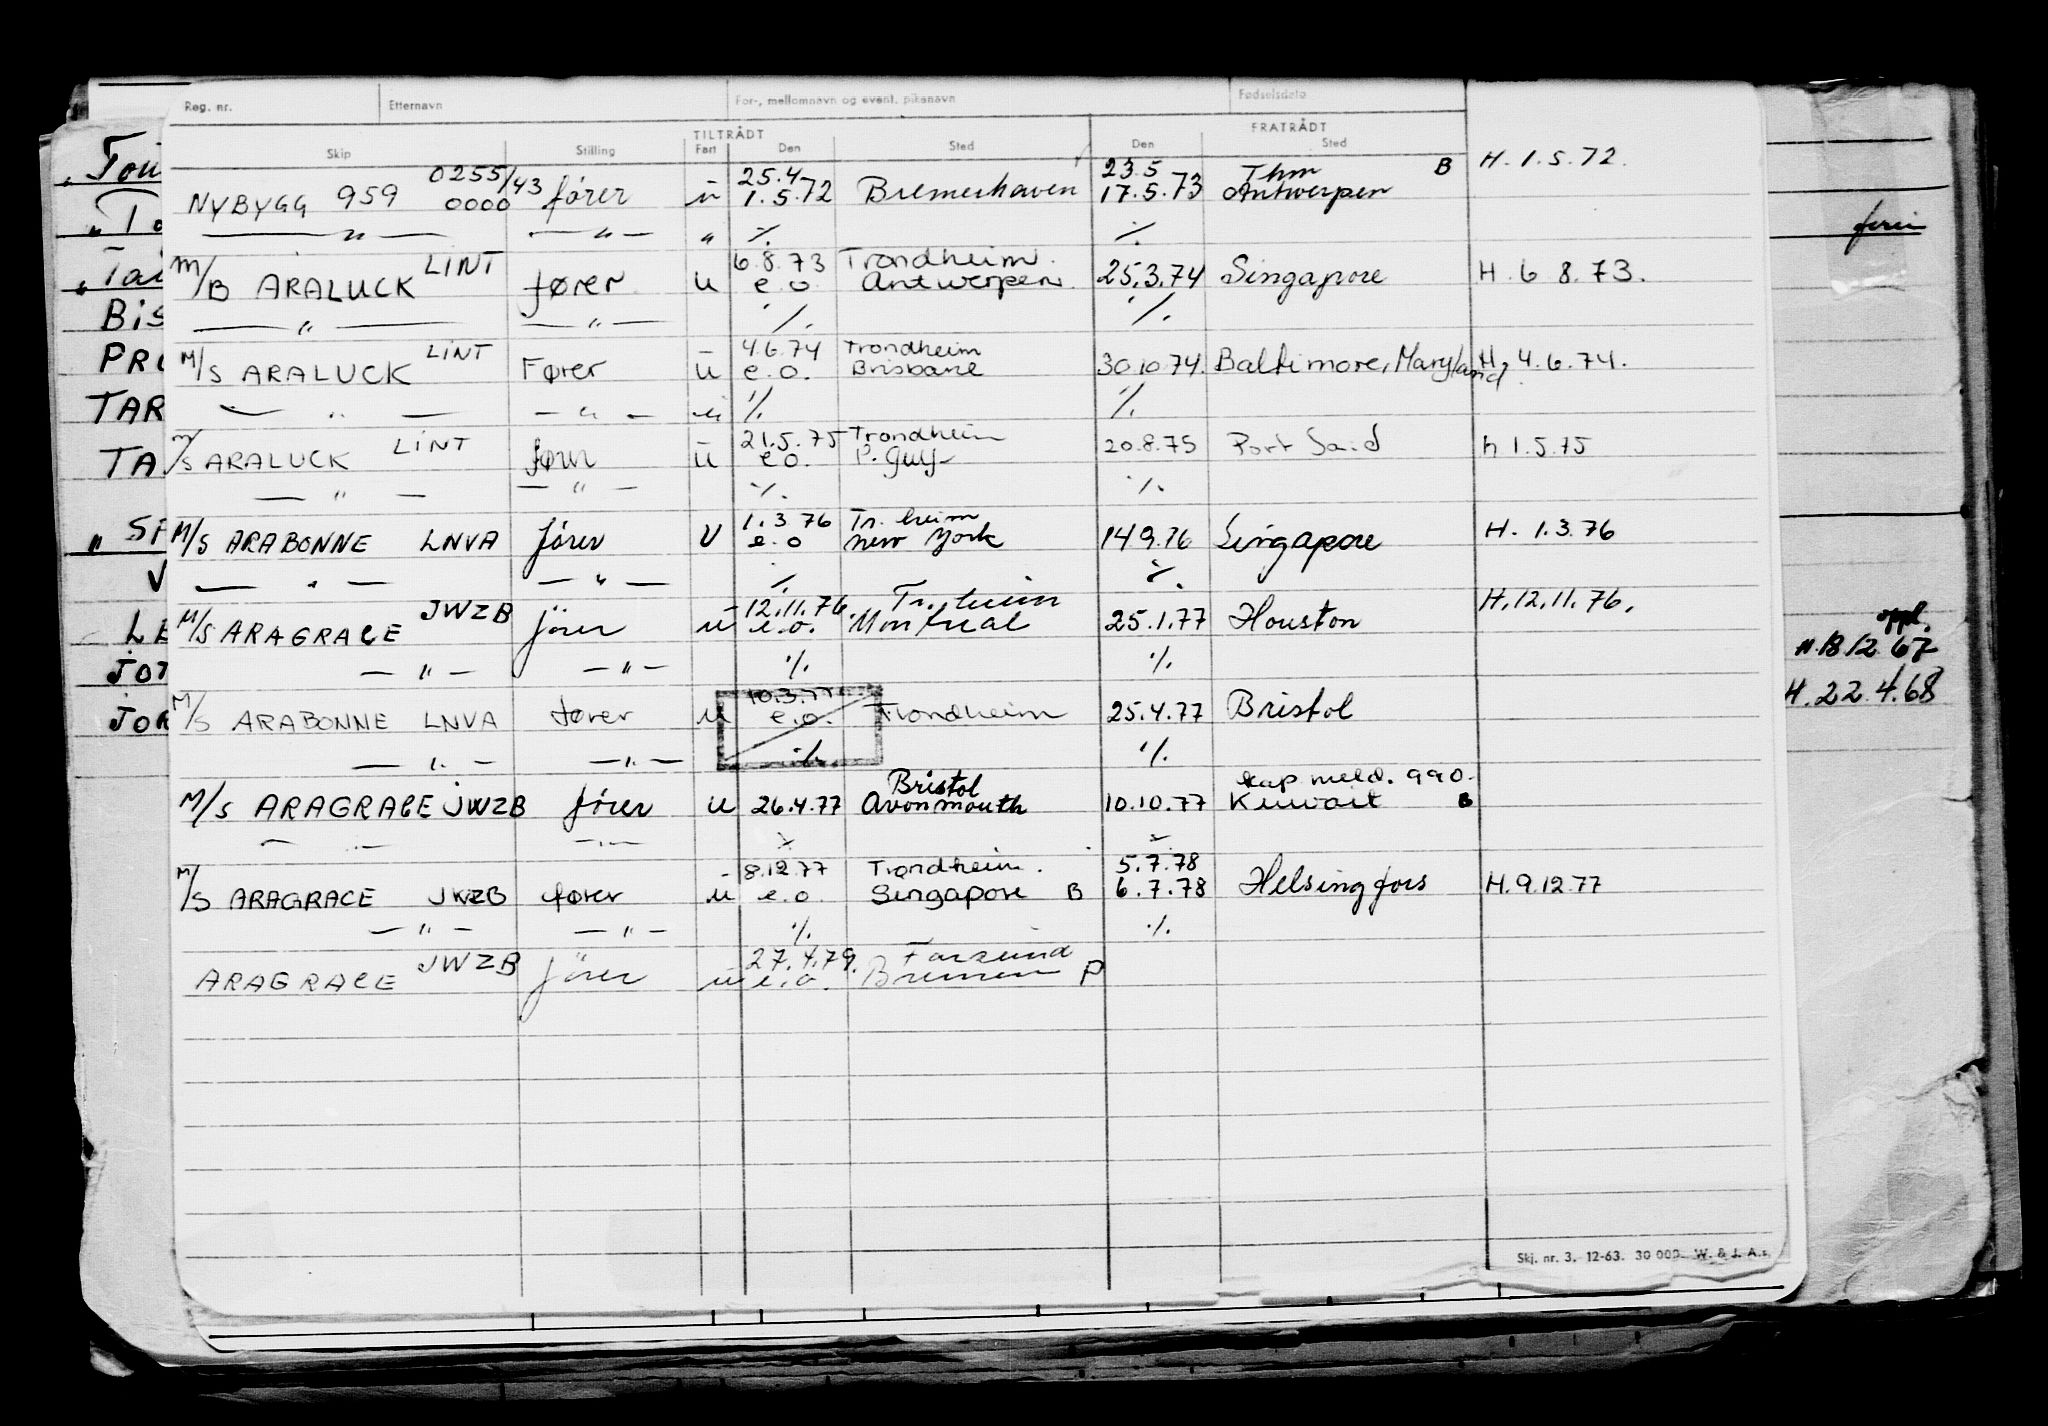 Reg. nr. Etternavn For-, mellomnavn og event. pikenavn Fødselsdato
TILTRÅDT FRATRÅDT
Skip Stilling Fart Den Sted Den Sted
0255/43 25.4 23.5 Thm B H. 1.5.72.
NYBYGG 959 0000 fører u 1.5.72 Bremerhaven 17.5.73 Antwerpen
— " — — " — " ./. ./.
LINT 6.8.73 Trondheim.
M/B ARALUCK fører u e.o. Antwerpen 25.3.74 Singapore H. 6 8.73.
— " — — " — ./. ./.
LINT 4.6.74 Trondheim
M/S ARALUCK Fører u e.o. Brisbane 30.10.74. Baltimore, Maryland H. 4.6.74.
— " — — " — " ./. ./.
LINT 21.5.75 Trondheim
M/S ARALUCK fører u e.o. P. Gulf 20.8.75 Port Said h 1.5.75
— " — — " — ./. ./.
1.3 76 Tr. heim
M/S ARABONNE LNVA fører u e.o New York 14 9.76 Singapore H. 1.3.76
— " — — " — ./. ./.
JWZB 12.11.76. Tr. heim H. 12.11.76.
M/S ARAGRACE fører u e.o. Montreal 25.1.77 Houston
— " — — " — ./. ./.
10.3.77
M/S ARABONNE LNVA fører u e.o. Trondheim 25.4.77 Bristol
— " — — " — ./. ./.
Bristol kap meld. 990.
M/S ARAGRACE JWZB fører u 26.4.77 Avonmouth 10.10.77 Kuwait B
— " — — " — ./. ./.
8.12.77 Trondheim. 5.7.78
M/S ARAGRACE JWZB fører u e.o. Singapore B 6.7.78 Helsingfors H. 9.12.77
— " — — " — ./. ./.
JWZB 27.4.79. Farsund
ARAGRACE fører u e.o. Bremen P
Skj. nr. 3. 12-63. 30 000. W. & J. A.s.
"Tai
Bis
PRO
TAR
TA
V
LE
JOR
H. 18 12 67
H. 22.4.68